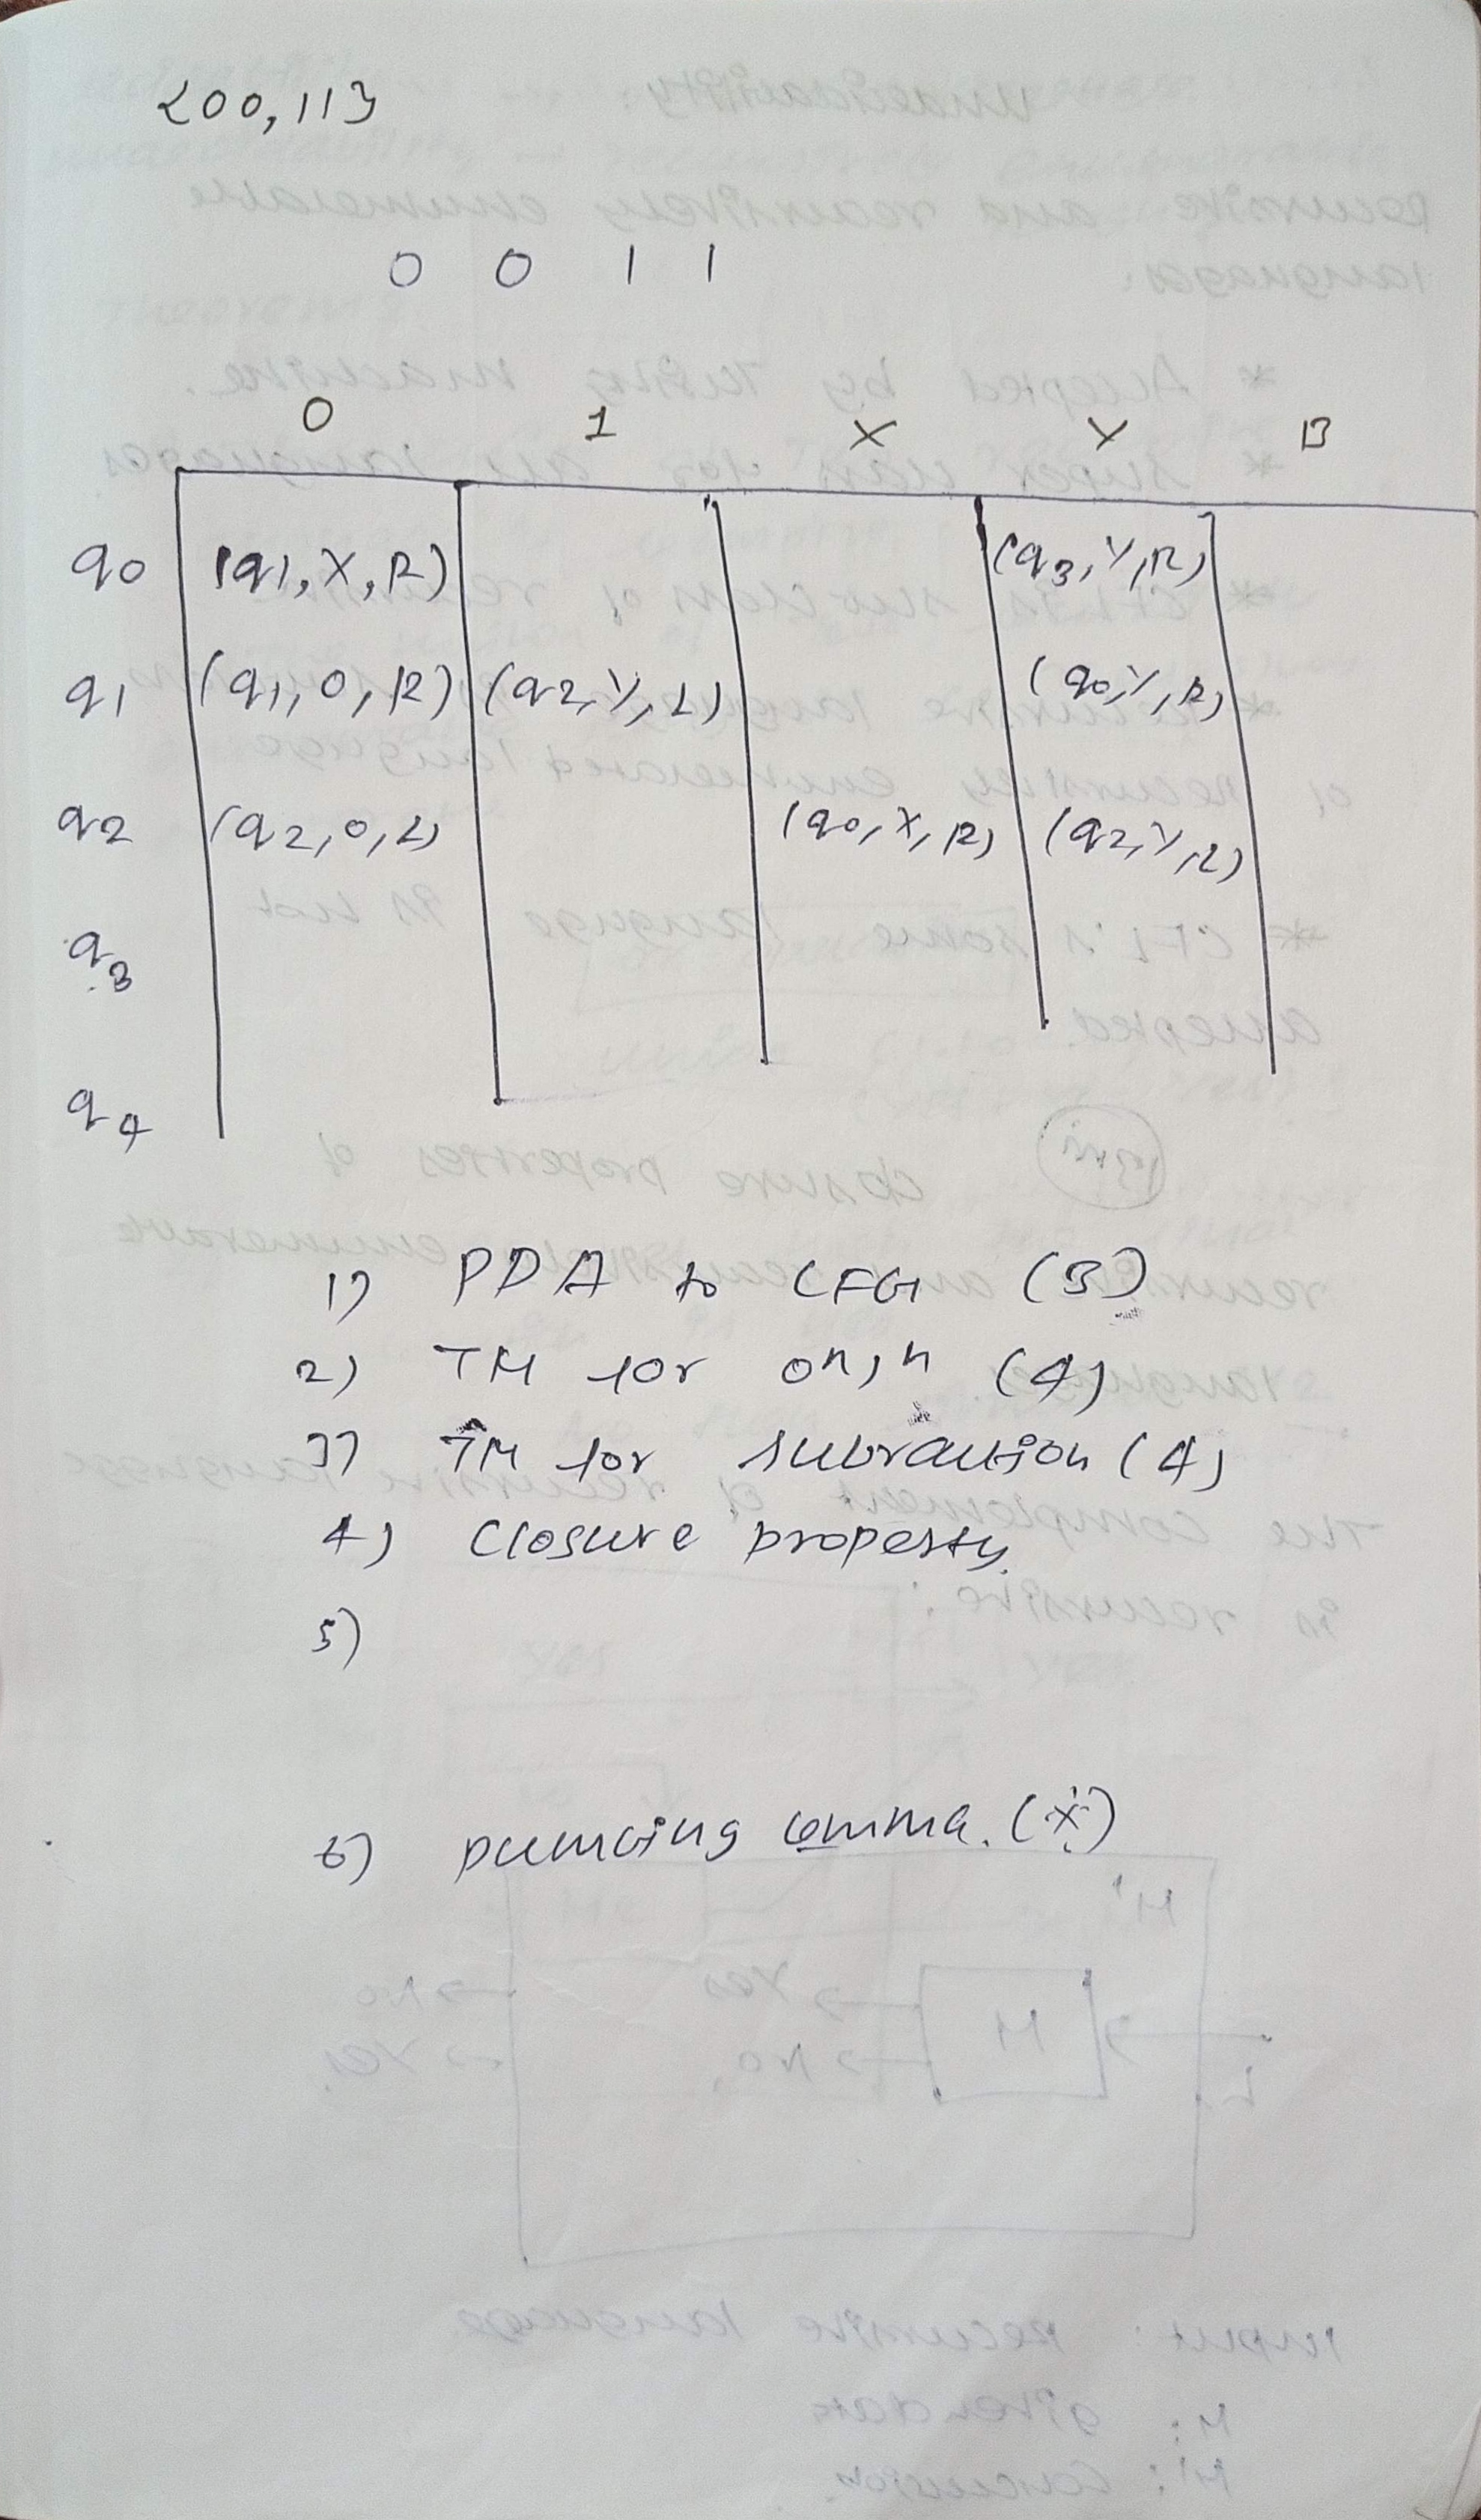 {00,11}
0 0 1 1
0 1 X Y B
q0 (q1, X, R) (q3, Y, R)
q1 (q1, 0, R) (q2, Y, L) (q0, Y, R)
q2 (q2, 0, L) (q0, X, R) (q2, Y, L)
q3
q4
1) PDA to CFG (3)
2) TM for 0n1n (4)
3) TM for subraction (4)
4) Closure property.
5)
6) pumcing lemma. (*)